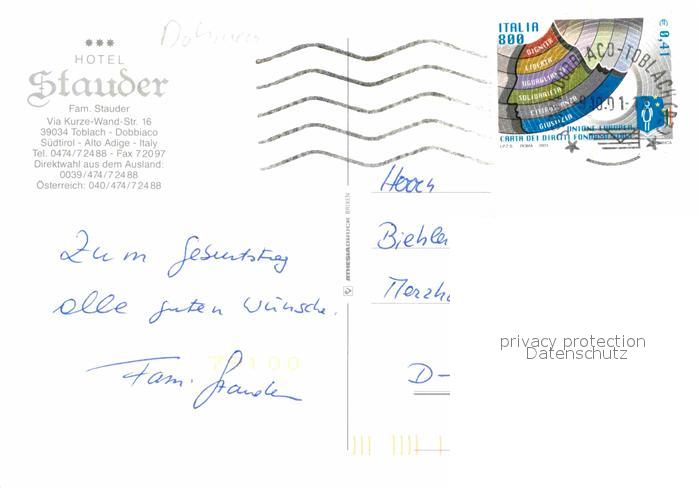 ★★★
HOTEL
Stauder
Fam. Stauder
Via Kurze-Wand-Str. 16
39034 Toblach - Dobbiaco
Südtirol - Alto Adige - Italy
Tel. 0474/72488 - Fax 72097
Direktwahl aus dem Ausland:
0039/474/72488
Österreich: 040/474/72488
Zum Geburtstag
alle guten Wünsche.
Fam. Stauder
ATHESIADRUCK BRIXEN
ITALIA
800
€ 0,41
DIGNITÀ
LIBERTÀ
UGUAGLIANZA
SOLIDARIETÀ
CITTADINANZA
GIUSTIZIA
UNIONE EUROPEA
CARTA DEI DIRITTI FONDAMENTALI
I.P.Z.S. ROMA 2001
DOBBIACO-TOBLACH
Biehle
Merzh
D-
privacy protection
Datenschutz